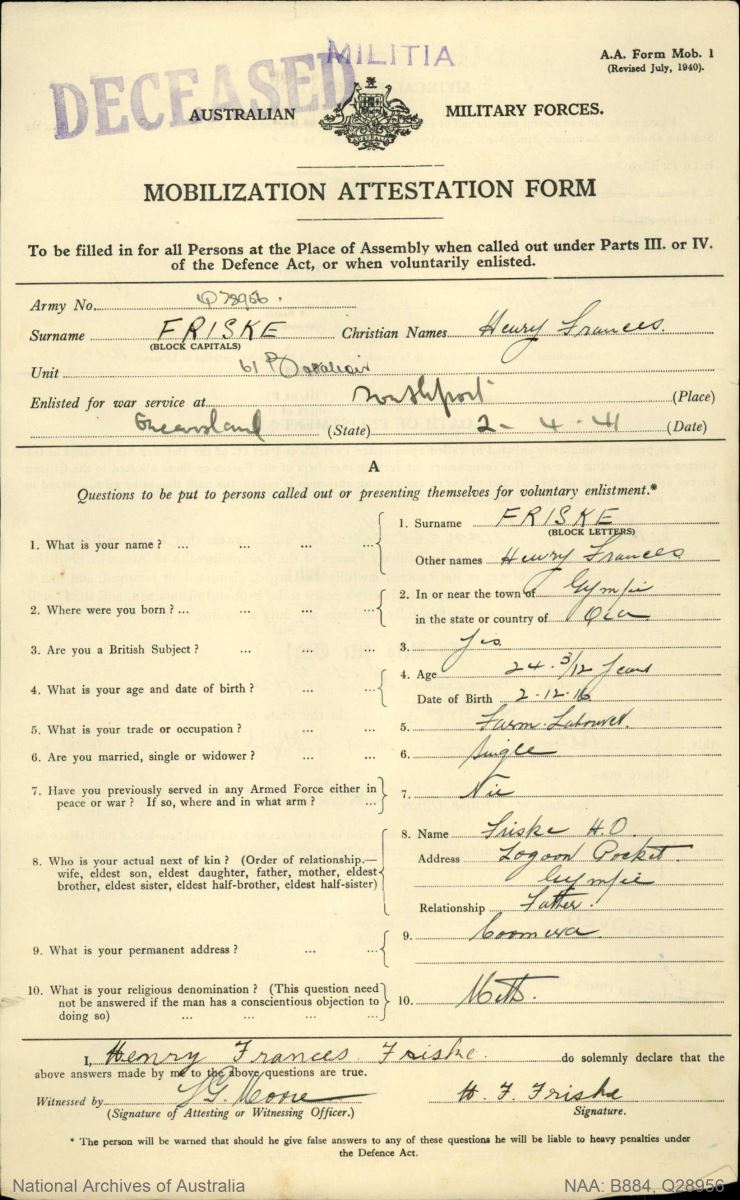 MILITIA
DECEASED
A.A. Form Mob. 1
(Revised July, 1940).
AUSTRALIAN MILITARY FORCES.
AUSTRALIA
MOBILIZATION ATTESTATION FORM
To be filled in for all Persons at the Place of Assembly when called out under Parts III. or IV.
of the Defence Act, or when voluntarily enlisted.
Army No. Q28956.
Surname FRISKE Christian Names Henry Frances.
(BLOCK CAPITALS)
Unit 61 Battalion
Enlisted for war service at Southport (Place)
Queensland (State) 2 - 4 - 41 (Date)
A
Questions to be put to persons called out or presenting themselves for voluntary enlistment.*
1. What is your name? ... ... ... ...
1. Surname FRISKE
(BLOCK LETTERS)
Other names Henry Frances
2. Where were you born? ... ... ... ...
2. In or near the town of Gympie
in the state or country of Qld
3. Are you a British Subject? ... ... ...
3. Yes
4. What is your age and date of birth? ... ...
4. Age 24 3/12 Years
Date of Birth 2-12-16
5. What is your trade or occupation? ... ...
5. Farm Labourer.
6. Are you married, single or widower? ... ...
6. Single
7. Have you previously served in any Armed Force either in
peace or war? If so, where and in what arm? ...
7. Nil
8. Who is your actual next of kin? (Order of relationship.—
wife, eldest son, eldest daughter, father, mother, eldest
brother, eldest sister, eldest half-brother, eldest half-sister)
8. Name Friske H.O.
Address Lagoon Pocket
Gympie
Relationship Father.
9. What is your permanent address? ... ...
9. Coomera
10. What is your religious denomination? (This question need
not be answered if the man has a conscientious objection to
doing so) ... ... ... ...
10. Meth.
I, Henry Frances Friske. do solemnly declare that the
above answers made by me to the above questions are true.
Witnessed by Moore H. F. Friske
(Signature of Attesting or Witnessing Officer.) Signature.
* The person will be warned that should he give false answers to any of these questions he will be liable to heavy penalties under
the Defence Act.
National Archives of Australia NAA: B884, Q28956